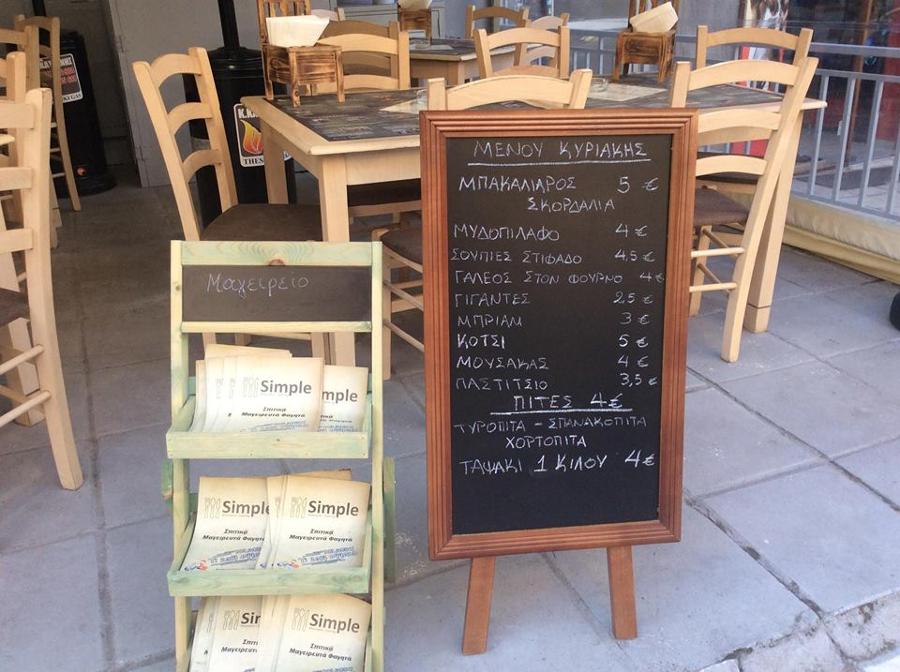 ΜΕΝΟΥ ΚΥΡΙΑΚΗΣ
ΜΠΑΚΑΛΙΑΡΟΣ 5 €
ΣΚΟΡΔΑΛΙΑ
ΜΥΔΟΠΙΛΑΦΟ 4 €
ΣΟΥΠΙΕΣ ΣΤΙΦΑΔΟ 4,5 €
ΓΑΛΕΟΣ ΣΤΟΝ ΦΟΥΡΝΟ 4 €
ΓΙΓΑΝΤΕΣ 2,5 €
ΜΠΡΙΑΜ 3 €
ΚΟΤΣΙ 5 €
ΜΟΥΣΑΚΑΣ 4 €
ΠΑΣΤΙΤΣΙΟ 3,5 €
ΠΙΤΕΣ 4€
ΤΥΡΟΠΙΤΑ - ΣΠΑΝΑΚΟΠΙΤΑ
ΧΟΡΤΟΠΙΤΑ
ΤΑΨΑΚΙ 1 ΚΙΛΟΥ 4 €
Μαγειρειο
Simple
Σπιτικά
Μαγειρευτά Φαγητά
Simple
Simple
Σπιτικά
Μαγειρευτά Φαγητά
Simple
Σπιτικά
Μαγειρευτά Φαγητά
Simple
Μαγειρευτά
Simple
Σπιτικά
Μαγειρευτά Φαγητά